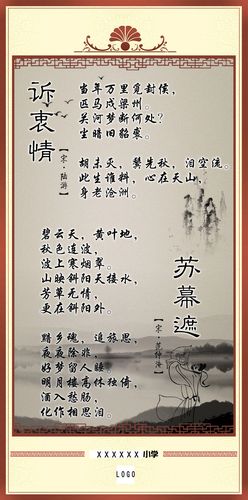 诉衷情
【宋·陆游】
当年万里觅封侯，
匹马戍梁州。
关河梦断何处？
尘暗旧貂裘。
胡未灭，鬓先秋，泪空流。
此生谁料，心在天山，
身老沧洲。
苏幕遮
【宋·范仲淹】
碧云天，黄叶地，
秋色连波，
波上寒烟翠。
山映斜阳天接水，
芳草无情，
更在斜阳外。
黯乡魂，追旅思，
夜夜除非，
好梦留人睡。
明月楼高休独倚，
酒入愁肠，
化作相思泪。
××××××小学
LOGO